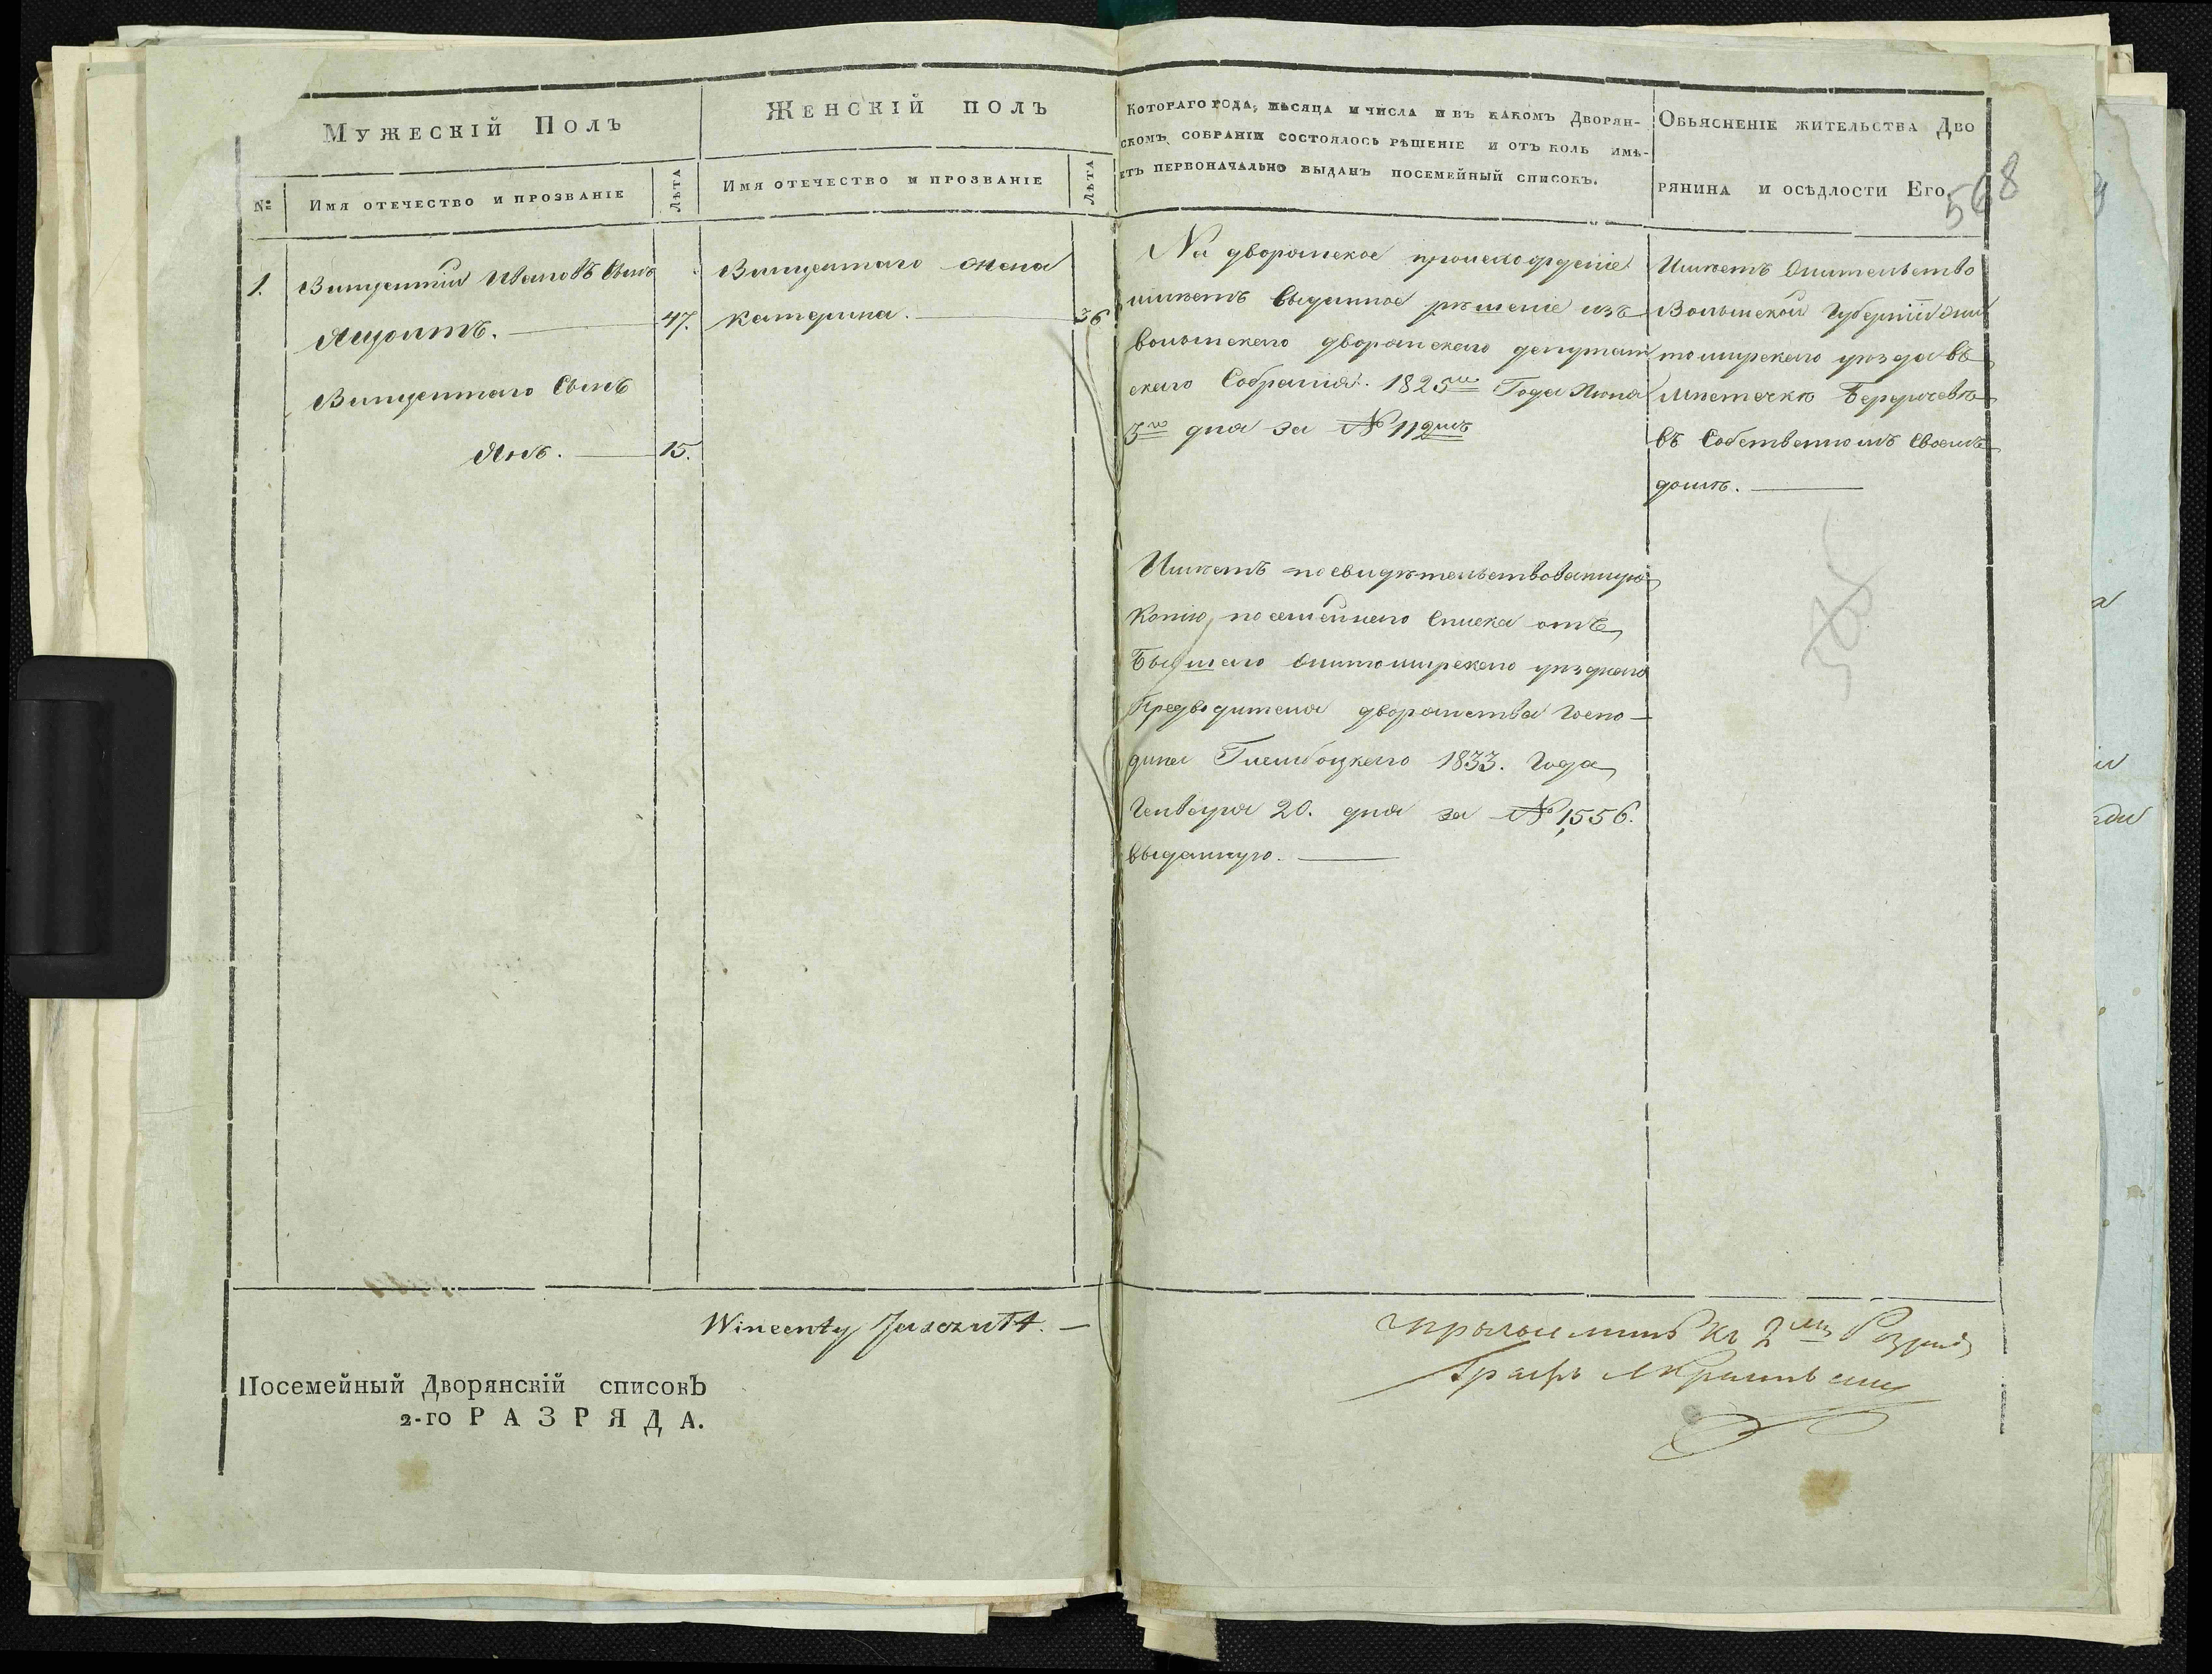 Мужескій Полъ
Женскій полъ
Котораго года, мѣсяца и числа и въ какомъ Дворян-
скомъ собраніи состоялось рѣшеніе и отъ коль имѣ-
етъ первоначально выданъ посемейный списокъ.
Объясненіе жительства Дво
рянина и осѣдлости Его.
568
№
Имя отечество и прозваніе
Лѣта
Имя отечество и прозваніе
Лѣта
1.
Винцентій Ивановъ Сынъ
47.
Винцентаго Сынъ
15.
Винцентаго жена
Катерина.
36
На дворянское происхожденіе
имѣетъ выданное рѣшеніе изъ
волынскаго дворянскаго депутат
скаго Собранія. 1825го Года Іюня
3го дня за № 112мъ
Имѣетъ посвидѣтельствованную
Копію, посемейнаго Списка отъ
Бывшаго житомирскаго уѣзднаго
Предводителя дворянства Госпо-
дина Глембоцкаго 1833. Года
Генваря 20. дня за № 1556.
выданную.
Имѣетъ жительство
Волынской Губерніи жи
томирскаго уѣзда въ
мѣстечкѣ Бердичевѣ
въ Собственномъ своемъ
домѣ.
Wincenty
къ 2му
Графъ
Посемейный Дворянскій списокЪ
2-го РАЗРЯДА.